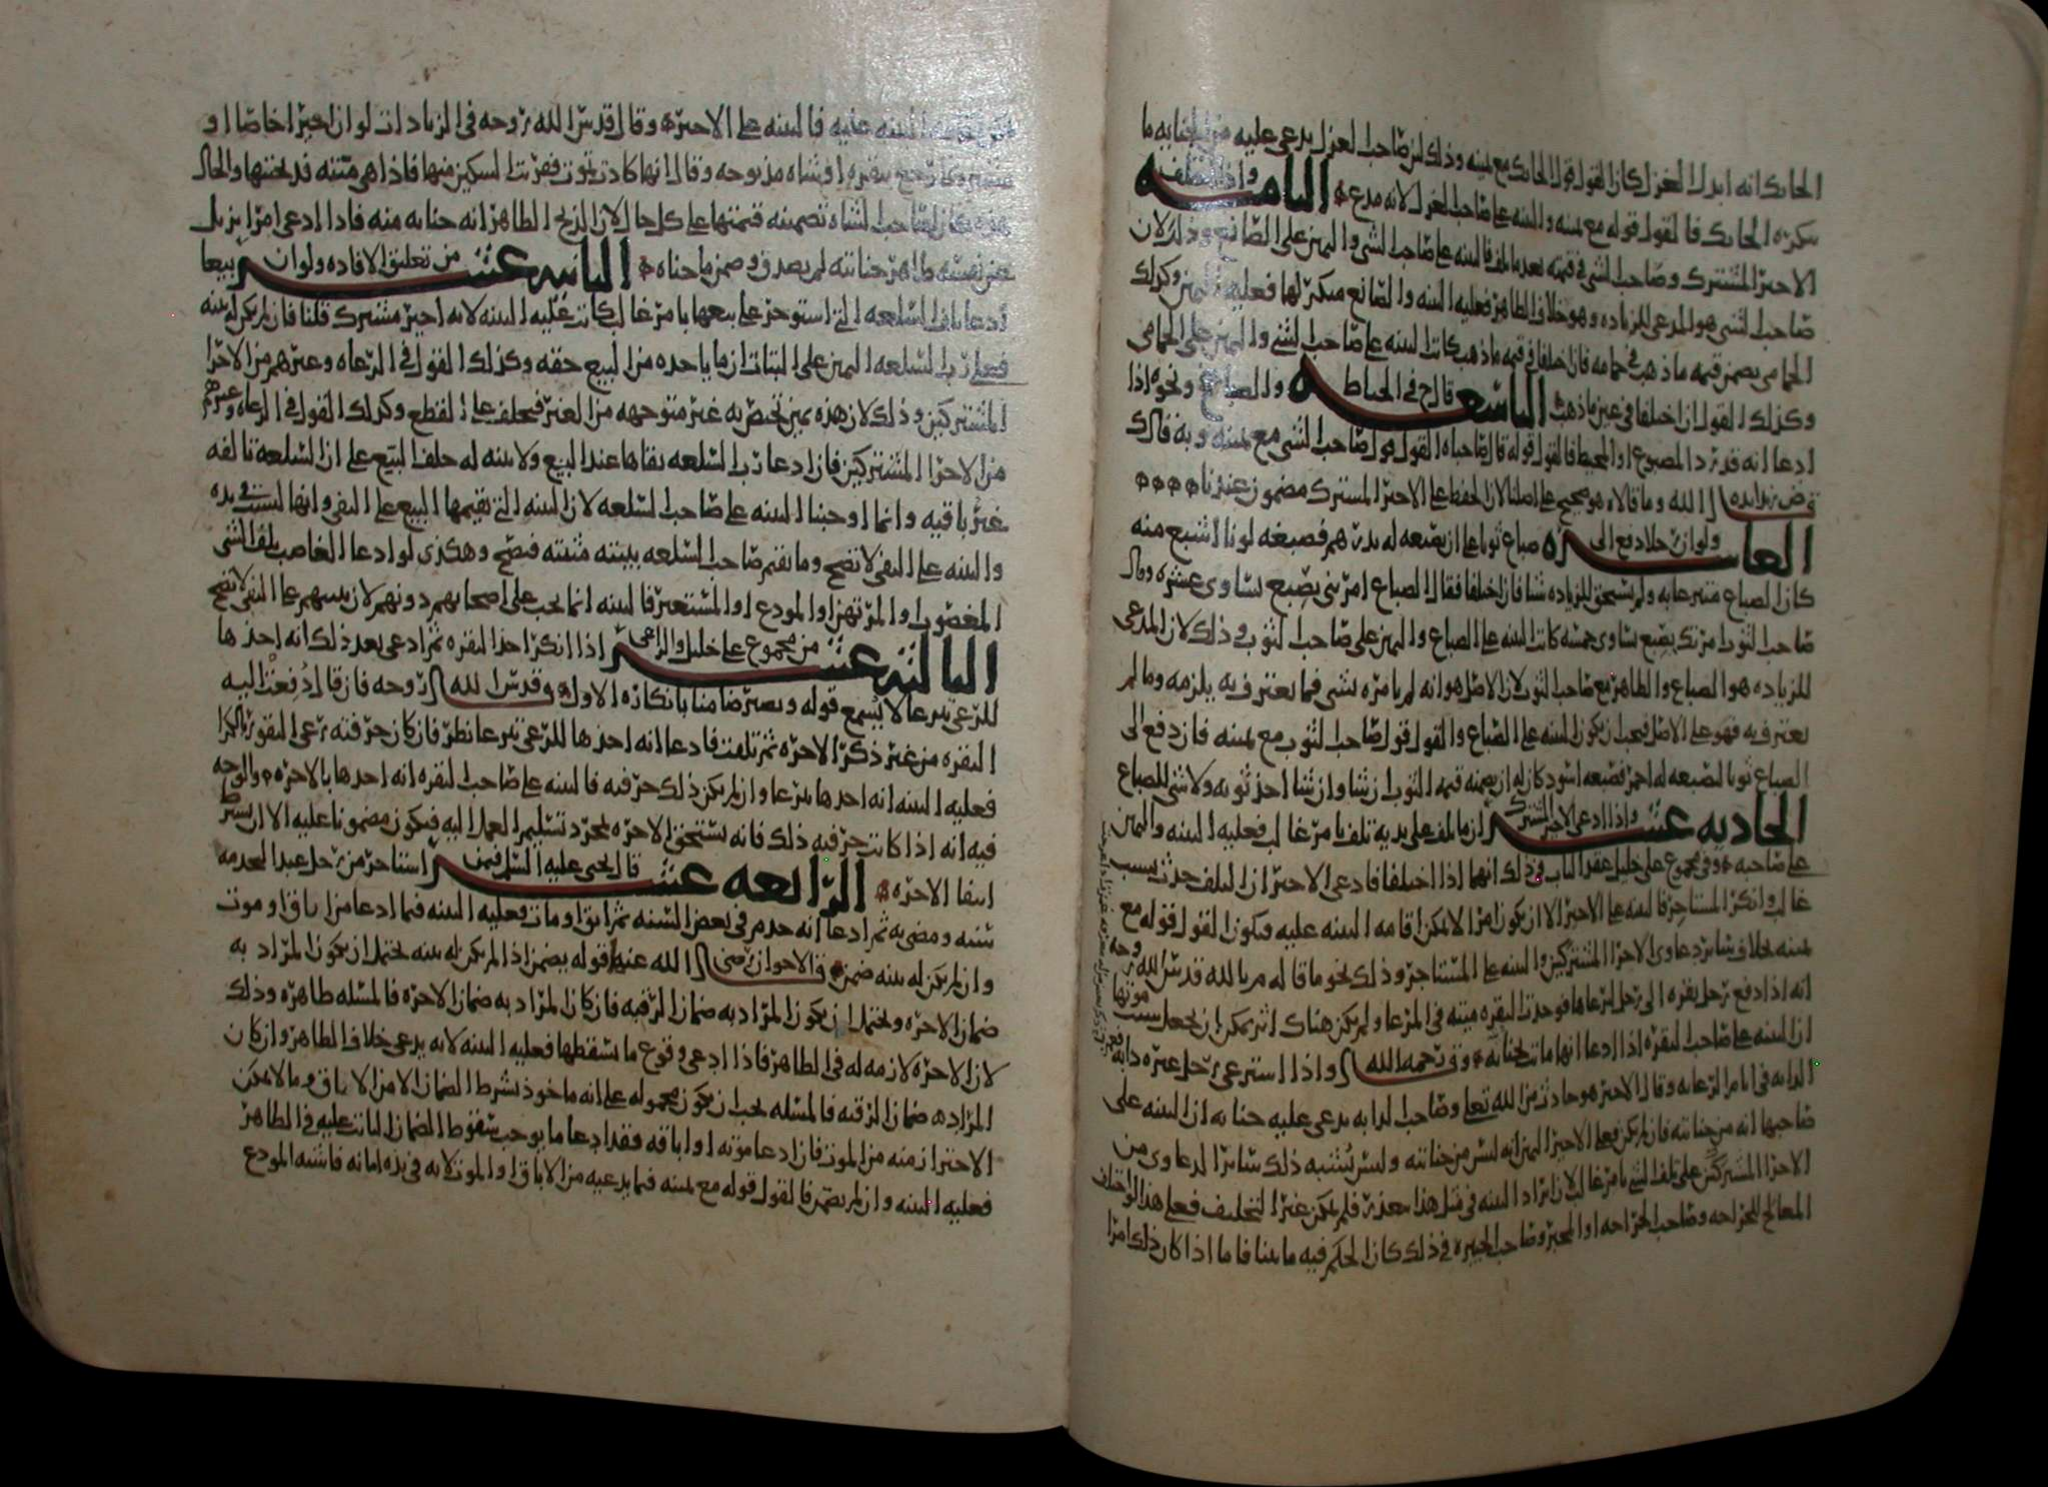 الحايك انه ابدل الغزل كان القول قول الحايك مع يمينه وذلك لان صاحب الغزل يدعى عليه من الخيانه ما
ينكره الحايك فالقول قوله مع يمينه والبينه على صاحب الغزل لانه مدع الثامنه واذا اختلف
الاجير المشترك وصاحب الشى فى قيمته بعد ما تلف فالبينه على صاحب الشى واليمين على الصانع وذلك لان
صاحب الشى هو المدعى للزياده وهو خلاف الظاهر فعليه البينه والصانع منكر لها فعليه اليمين وكذلك
الحمامى يضمن قيمه ما ذهب فى حمامه فان اختلفا فى قيمه ما ذهب كانت البينه على صاحب الشى واليمين على الحمامى
وكذلك القول ان اختلفا فى عين ما ذهب التاسعه قال ح فى الخياط والصباغ ونحوه اذا
ادعا انه قد رد المصبوغ او المخيط فالقول قوله قال صاحباه القول قول صاحب الشى مع يمينه وبه قال ك
الله وما قالاه هو صحيح على اصلنا لان الحفظ على الاجير المشترك مضمون عندنا
العاشره ولو ان رجلا دفع الى صباغ ثوبا على ان يصبغه له بدرهم فصبغه لونا اشبع منه
كان الصباغ متبرعا به ولم يستحق للزياده شيا فان اختلفا فقال الصباغ امرتنى بصبغ يساوى عشره وقال
صاحب الثوب امرتك بصبغ يساوى خمسه كانت البينه على الصباغ واليمين على صاحب الثوب وذلك لان المدعى
للزياده هو الصباغ والظاهر مع صاحب الثوب لان الاصل هو انه لم يامره بشى فما يعترف به يلزمه وما لم
يعترف به فهو على الاصل فيجب ان يكون البينه على الصباغ والقول قول صاحب الثوب مع يمينه فان دفع الى
الصباغ ثوبا ليصبغه له احمر فصبغه اسود كان له ان يضمنه قيمه الثوب ان شا وان شا اخذ ثوبه ولا شى للصباغ
الحاديه عشر واذا ادعى الاجير المشترك ان ما تلف على يديه تلف بامر غالب فعليه البينه واليمين
على صاحبه وفى مجموع على خليل عقد الباب فى ذلك انهما اذا اختلفا فادعى الاجير ان التلف حدث بسبب
غالب وانكر المستاجر فالبينه على الاجير الا ان يكون امرا لا يمكن اقامه البينه عليه فيكون القول قوله مع
يمينه بخلاف سائر دعاوى الاجرا المشتركين والبينه على المستاجر وذلك نحو ما قاله م بالله قدس الله روحه
انه اذا دفع رجل بقره الى رجل ليرعاها فوجدت البقره ميته فى المرعا ولم يكن هناك اثر يمكن ان يجعل سبب موتها
ان البينه على صاحب البقره اذا ادعا انها ماتت بجنايته رحمه الله واذا استرعى رجل غيره دابه
الدابه فى ايام الرعايه وقال الاجير هو حادث من الله تعلى وصاحب الدابه يدعى عليه جنايه ان البينه على
صاحبها انه من جنايته فان لم يكن فعلى الاجير اليمين انه ليس من جنايته وليس يشبه ذلك سائر الدعاوى من
الاجرا المشتركين على تلف الشى بامر غالب لان ايراد البينه فى مثل هذا يتعذر فلم يمكن غير التحليف فعلى هذا لو اختلف
المعالج للجراحه وصاحب الجراحه او المجبر وصاحب الجبيره فى ذلك كان الحكم فيه ما بينا فاما اذا كان ذلك امرا
البينه عليه فالبينه على الاجير وقال قدس الله روحه فى الزيادات لو ان اجيرا خاصا او
بقره او شاه مذبوحه وقال انها كادت تموت فقربت السكين منها فاذا هى ميته قد نحتها والحال
هذه كان لصاحب الشاه تضمينه قيمتها على كل حال لان الذبح الظاهر انه جنايه منه فاذا ادعى امرا يزيل
عن نفسه ظاهر جنايته لم يصدق وضمن ما جناه الثانيه عشر من تعليق الافاده ولو ان بيعا
ادعا تلف السلعه التى استوجر على بيعها بامر غالب كانت عليه البينه لانه اجير مشترك قلنا فان لم يكن له بينه
فعلى رب السلعه اليمين على البتات ان ما ياخده من البيع حقه وكذلك القول فى الرعاه وغيرهم من الاجرا
المشتركين وذلك لان هذه يمين تختص به غير متوجهه من الغير فيحلف على القطع وكذلك القول فى الرعاه وغيرهم
من الاجرا المشتركين فان ادعا رب السلعه بقاها عند البيع ولا بينه له حلف البيع على ان السلعه تالفه
غير باقيه وانما اوجبنا البينه على صاحب السلعه لان البينه التى يقيمها البيع على النفى وانها ليست فى يده
والبينه على النفى لا تصح وما يقيم صاحب السلعه بينته مثبته فتصح وهكذى لو ادعا الغاصب تلف الشى
المغصوب والمرتهن او المودع او المستعير فالبينه انما تجب على اصحابهم دونهم لان بينتهم على النفى لا تصح
الثالثه عشر من مجموع على خليل والراعى اذا انكر اخذ البقره ثم ادعى بعد ذلك انه اخذها
للرعى تبرعا لا يسمع قوله ويصير ضامنا بانكاره الاول قدس الله روحه فان قال دفعت اليه
البقره من غير ذكر الاجره ثم تلفت فادعا انه اخذها للرعى تبرعا نظر فان كان حرفته رعى البقور بالكرا
فعليه البينه انه اخذها تبرعا وان لم يكن ذلك حرفته فالبينه على صاحب البقره انه اخدها بالاجره والوجه
فيه انه اذا كانت حرفته ذلك فانه يستحق الاجره بمجرد تسليم العمل اليه فيكون مضمونا عليه الا ان يشترط
انتفا الاجره الرابعه عشر قال يحيى عليه السلم فيمن استاجر من رجل عبدا ليخدمه
سنه ومضى به ثم ادعا انه خدم فى بعض السنه ثم ابق او مات فعليه البينه فيما ادعا من اباق او موت
وان لم يكن له بينه ضمن قال الاخوان رضى الله عنهما قوله يضمن اذا لم يكن له بينه يحتمل ان يكون المراد به
ضمان الاجره ويحتمل ان يكون المراد به ضمان الرقبه فان كان المراد به ضمان الاجره فالمسله ظاهره وذلك
لان الاجره لازمه له فى الظاهر فاذا ادعى وقوع ما يسقطها فعليه البينه لانه يدعى خلاف الظاهر وان كان
المراد به ضمان الرقبه فالمسله يجب ان يكون محموله على انه ماخوذ بشرط الضمان الا من الاباق وما لا يمكن
الاحتراز منه من الموت فان ادعا موته او اباقه فقد ادعا ما يوجب سقوط الضمان الثابت عليه فى الظاهر
فعليه البينه وان لم يضمن فالقول قوله مع يمينه فيما يدعيه من الاباق او الموت لانه فى يده امانه فاشبه المودع